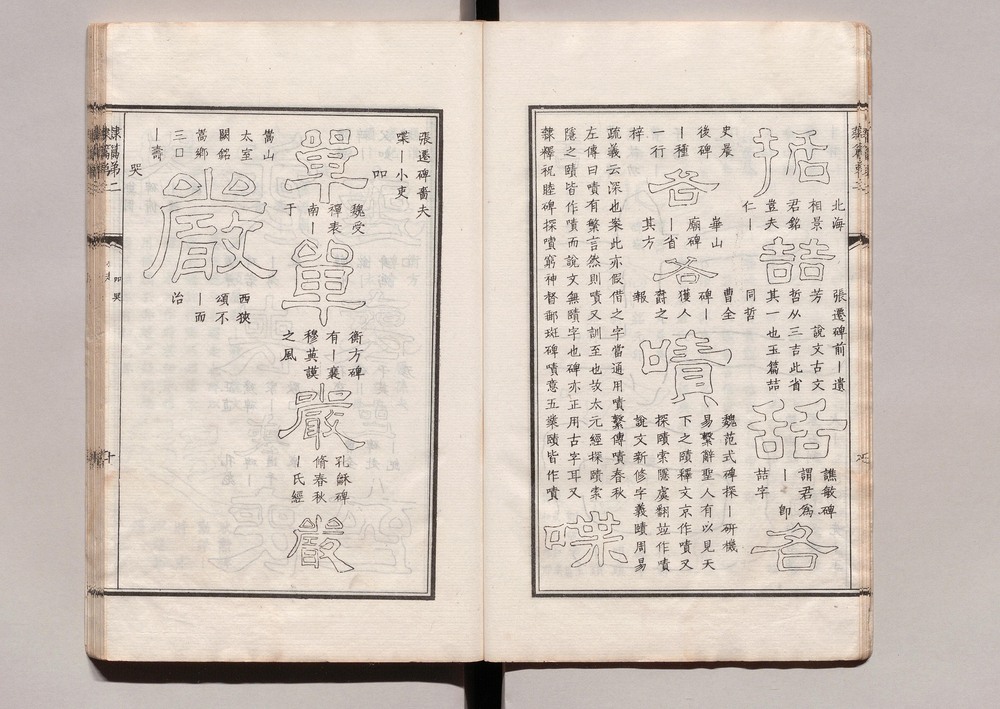 括
北海
相景
君銘
豈夫
仁—
喆
張遷碑前—遺
芳 說文古文
哲从三吉此省
其一也玉篇喆
同哲
譙敏碑
謂君爲
—卽
喆字
吝
史晨
後碑
—種
一行
梓
吝
華山
廟碑
—省
其方
吝
曹全
碑—
獲人
爵之
報
嘖
魏范式碑探—研機
易繫辭聖人有以見天
下之賾釋文京作嘖又
探賾索隱虞翻竝作嘖
說文新修字義賾周易
疏義云深也案此亦假借之字當通用嘖繫傳嘖春秋
左傳曰嘖有繁言然則嘖又訓至也故太元經探賾索
隱之賾皆作嘖而說文無賾字也碑亦正用古字耳又
隸釋祝睦碑探嘖窮神督郵斑碑嘖意五業賾皆作嘖
喋
張遷碑嗇夫
喋—小吏
吅
單
魏受
禪表
南—
于
單
衡方碑
有—襄
穆莫謨
之風
嚴
孔龢碑
脩春秋
—氏經
嚴
嵩山
太室
闕銘
嵩鄉
三口
—壽
嚴
西狹
頌不
—而
治
哭
隸篇弟二